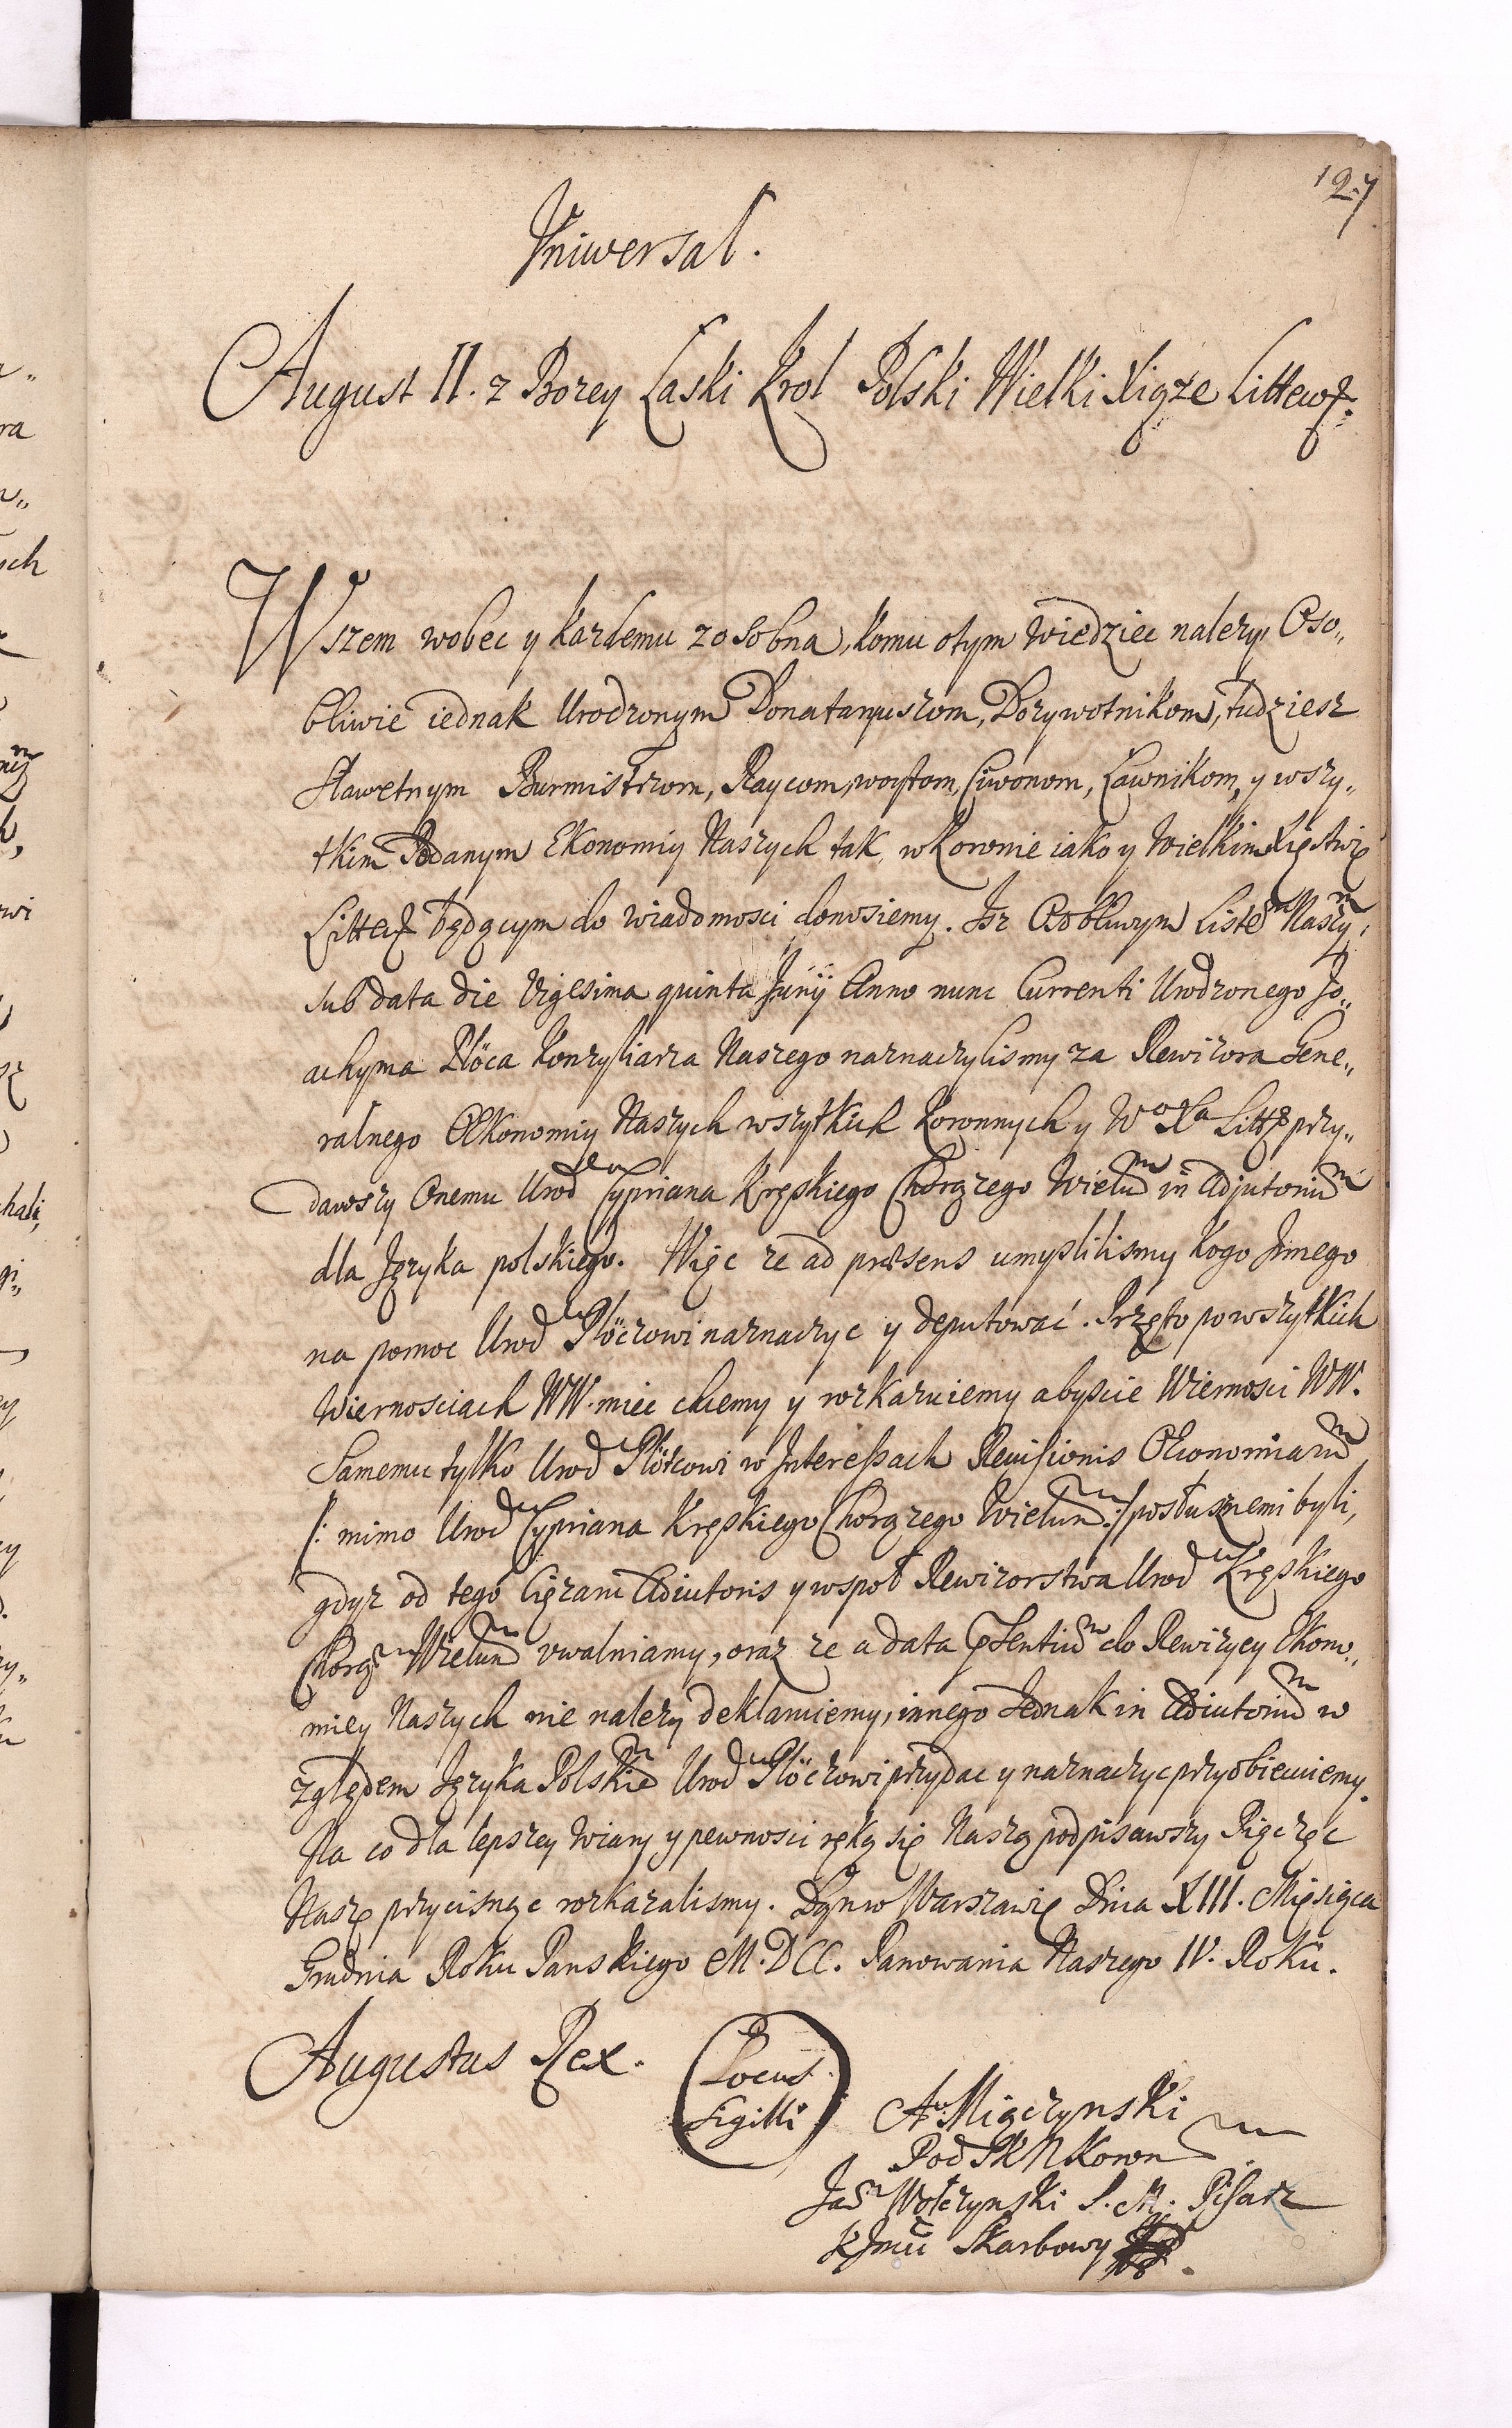 127
Vniwersał.
August II. z Bozey Łaski Krol Polski Wielki Xiąze Littew:
Wszem wobec y kazdemu zosobna, komu otym wiedziec nalezy, Oso„
bliwie iednak Urodzonym Donataryuszom, Dozywotnikom, tudziesz
sławetnym Burmistrzom, Raycom, woytom, Ciwonom, Ławnikom, y wszy„
tkim Podanym Ekonomiy Naszych tak w Koronie iako y Wielkim Xięstwie
Littew będącym do wiadomosci donosiemy. Jsz Osobliwym Liste͠m Naszy͠m,
sub data die Vigesima quinta Junij Anno nunc Currenti Urodzonego Jo„
achyma Plöca Konzyliarza Naszego naznaczylismy za Rewizora Gene„
ralnego Œkonomiy Naszych wszytkich Koronnych y Wᵒ Xᵃ Litt przy„
dawszy Onemu Urod Cypriana Kręskiego Chorązego Wielu͠n in Adjutoriu͠m
dla Języka polskiego. Więc ze ad præsens umyslilismy kogo Jnnego
na pomoc Urod Plöczowi naznaczyc y deputować. Przęto po wszytkich
Wiernosciach WW. miec chcemy y rozkazuiemy abyscie Wiernosci WW.
Samemu tylko Urod Plötzowi w Interessach Revisionis Œconomiaru͠m
/: mimo Urod Cypriana Kręskiego Chorązego Wielun͠:/ posłusznemi byli,
gdyz od tego Cięzaru Adiutoris y wspoł Rewizorstwa Urod Kręskiego
Chorąz Wielu͠n uwalniamy, oraz ze a data p͠sentiu͠m do Rewizycy Ekono„
miey Naszych nie nalezy deklaruiemy, innego Jednak in Adiutoriu͠m w
zględem Języka Polskie Urod Plöczowi przydac y naznaczyc przyobiecuiemy.
Na co dla lepszey Wiary y pewnosci ręką się Naszą podpisawszy Pięczęc
Naszę przycisnąc rozkazalismy. Dan w Warszawie Dnia XIII. Miesiąca
Grudnia Roku Panskiego M.DCC. Panowania Naszego IV. Roku.
Augustus Rex.
Locus
Sigilli
At. Miączynski
Pod Sk N Koron
Jan Wołczynski J. K. M. Pisarz
Skarbowy